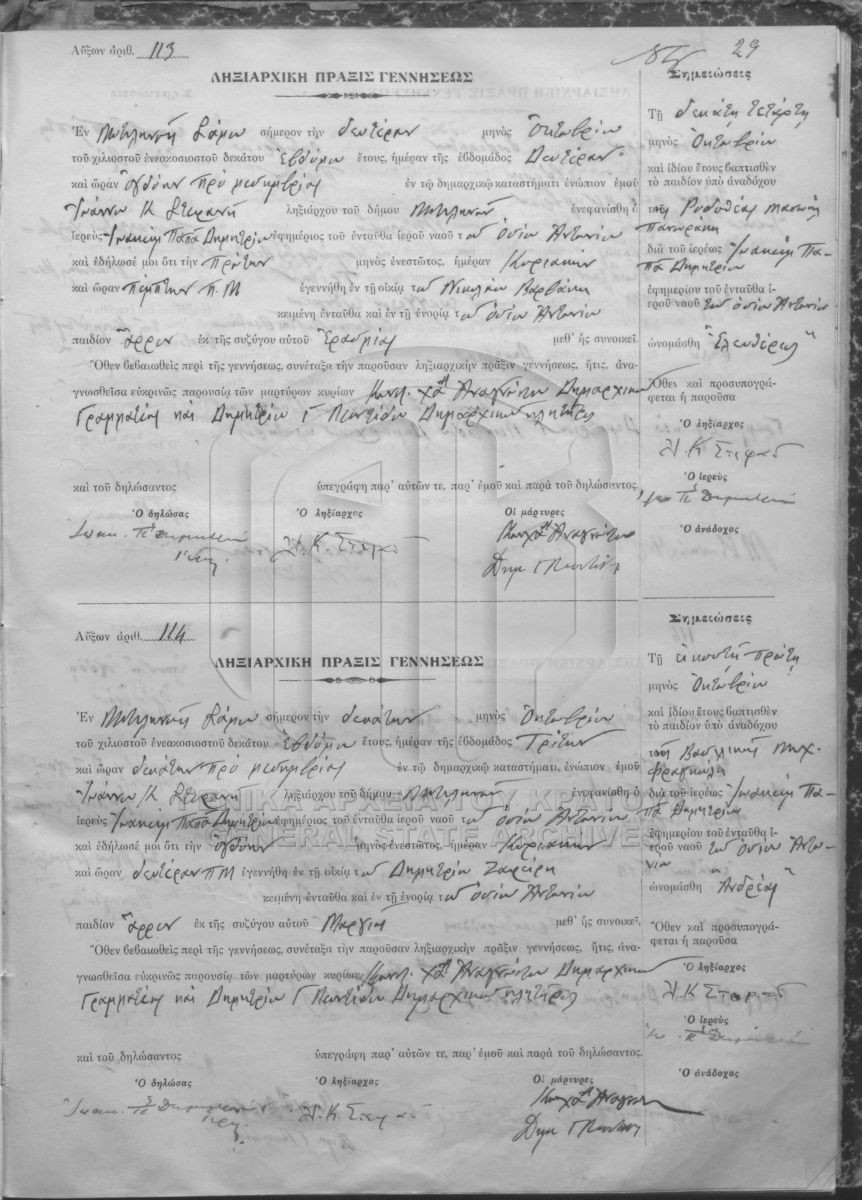 Αὔξων ἀριθ. 113
29
ΛΗΞΙΑΡΧΙΚΗ ΠΡΑΞΙΣ ΓΕΝΝΗΣΕΩΣ
Ἐν Μυτιληνιοῖς Σάμου σήμερον τὴν δευτέραν μηνὸς Ὀκτωβρίου
τοῦ χιλιοστοῦ ἐνεακοσιοστοῦ δεκάτου Ἑβδόμου ἔτους, ἡμέραν τῆς ἑβδομάδος Δευτέραν
καὶ ὥραν Ὀγδόην πρὸ μεσημβρίας ἐν τῷ δημαρχικῷ καταστήματι ἐνώπιον ἐμοῦ
Ἰωάννου Κ. Στεφανῆ ληξιάρχου τοῦ δήμου ἐνεφανίσθη ὁ
ἱερεὺς Ἰωακεὶμ Παπᾶ Δημητρίου ἐφημέριος τοῦ ἐνταῦθα ἱεροῦ ναοῦ τοῦ ὁσίου Ἀντωνίου
καὶ ἐδήλωσέ μοι ὅτι τὴν Πρώτην μηνὸς ἐνεστῶτος, ἡμέραν Κυριακὴν
καὶ ὥραν πέμπτην π.Μ ἐγεννήθη ἐν τῇ οἰκίᾳ τοῦ Νικολάου Βαρβάκη
κειμένη ἐνταῦθα καὶ ἐν τῇ ἐνορίᾳ τοῦ ὁσίου Ἀντωνίου
παιδίον ἄρρεν ἐκ τῆς συζύγου αὐτοῦ Ἐρασμίας μεθ' ἧς συνοικεῖ.
Ὅθεν βεβαιωθεὶς περὶ τῆς γεννήσεως, συνέταξα τὴν παροῦσαν ληξιαρχικὴν πρᾶξιν γεννήσεως, ἥτις, ἀνα-
γνωσθεῖσα εὐκρινῶς παρουσίᾳ τῶν μαρτύρων κυρίων Ἀναγνώστου Δημαρχικοῦ
Γραμματέως καὶ Δημητρίου Γ Δημαρχικοῦ κλητῆρος
καὶ τοῦ δηλώσαντος ὑπεγράφη παρ' αὐτῶν τε, παρ' ἐμοῦ καὶ παρὰ τοῦ δηλώσαντος.
Ὁ δηλώσας Ὁ ληξίαρχος Οἱ μάρτυρες
Σημειώσεις
Τῇ δεκάτῃ τετάρτῃ
μηνὸς Ὀκτωβρίου
καὶ ἰδίου ἔτους βαπτισθὲν
τὸ παιδίον ὑπὸ ἀναδόχου
τῆς Ροδοθέας
διὰ τοῦ ἱερέως Ἰωακεὶμ Πα-
πᾶ Δημητρίου
ἐφημερίου τοῦ ἐνταῦθα ἱ-
εροῦ ναοῦ τοῦ ὁσίου Ἀντωνίου
ὠνομάσθη "Ἐλευθέριος"
Ὅθεν καὶ προσυπογρά-
φεται ἡ παροῦσα
Ὁ ληξίαρχος
Ὁ ἱερεὺς
Ὁ ἀνάδοχος
Αὔξων ἀριθ. 114
ΛΗΞΙΑΡΧΙΚΗ ΠΡΑΞΙΣ ΓΕΝΝΗΣΕΩΣ
Ἐν Μυτιληνιοῖς Σάμου σήμερον τὴν δεκάτην μηνὸς Ὀκτωβρίου
τοῦ χιλιοστοῦ ἐνεακοσιοστοῦ δεκάτου Ἑβδόμου ἔτους, ἡμέραν τῆς ἑβδομάδος Τρίτην
καὶ ὥραν δεκάτην πρὸ μεσημβρίας ἐν τῷ δημαρχικῷ καταστήματι, ἐνώπιον ἐμοῦ
Ἰωάννου Κ Στεφανῆ ληξιάρχου τοῦ δήμου ἐνεφανίσθη ὁ
ἱερεὺς Ἰωακεὶμ Παπᾶ Δημητρίου ἐφημέριος τοῦ ἐνταῦθα ἱεροῦ ναοῦ τοῦ ὁσίου Ἀντωνίου
καὶ ἐδήλωσέ μοι ὅτι τὴν ὀγδόην μηνὸς ἐνεστῶτος, ἡμέραν Κυριακὴν
καὶ ὥραν δευτέραν πΜ ἐγεννήθη ἐν τῇ οἰκίᾳ τοῦ Δημητρίου Ζαφείρη
κειμένη ἐνταῦθα καὶ ἐν τῇ ἐνορίᾳ τοῦ ὁσίου Ἀντωνίου
παιδίον ἄρρεν ἐκ τῆς συζύγου αὐτοῦ Μαργιᾶς μεθ' ἧς συνοικεῖ.
Ὅθεν βεβαιωθεὶς περὶ τῆς γεννήσεως, συνέταξα τὴν παροῦσαν ληξιαρχικὴν πρᾶξιν γεννήσεως, ἥτις, ἀνα-
γνωσθεῖσα εὐκρινῶς παρουσίᾳ τῶν μαρτύρων κυρίων Ἀναγνώστου Δημαρχικοῦ
Γραμματέως καὶ Δημητρίου Γ Δημαρχικοῦ κλητῆρος
καὶ τοῦ δηλώσαντος ὑπεγράφη παρ' αὐτῶν τε, παρ' ἐμοῦ καὶ παρὰ τοῦ δηλώσαντος.
Ὁ δηλώσας Ὁ ληξίαρχος Οἱ μάρτυρες
Σημειώσεις
Τῇ εἰκοστῇ πρώτῃ
μηνὸς Ὀκτωβρίου
καὶ ἰδίου ἔτους βαπτισθὲν
τὸ παιδίον ὑπὸ ἀναδόχου
τῆς Βασιλικῆς
διὰ τοῦ ἱερέως Ἰωακεὶμ Πα-
πᾶ Δημητρίου
ἐφημερίου τοῦ ἐνταῦθα ἱ-
εροῦ ναοῦ τοῦ ὁσίου Ἀντω-
νίου
ὠνομάσθη "Ἀνδρέας"
Ὅθεν καὶ προσυπογρά-
φεται ἡ παροῦσα
Ὁ ληξίαρχος
Ὁ ἱερεὺς
Ὁ ἀνάδοχος
ΓΕΝΙΚΑ ΑΡΧΕΙΑ ΤΟΥ ΚΡΑΤΟΥΣ
GENERAL STATE ARCHIVES